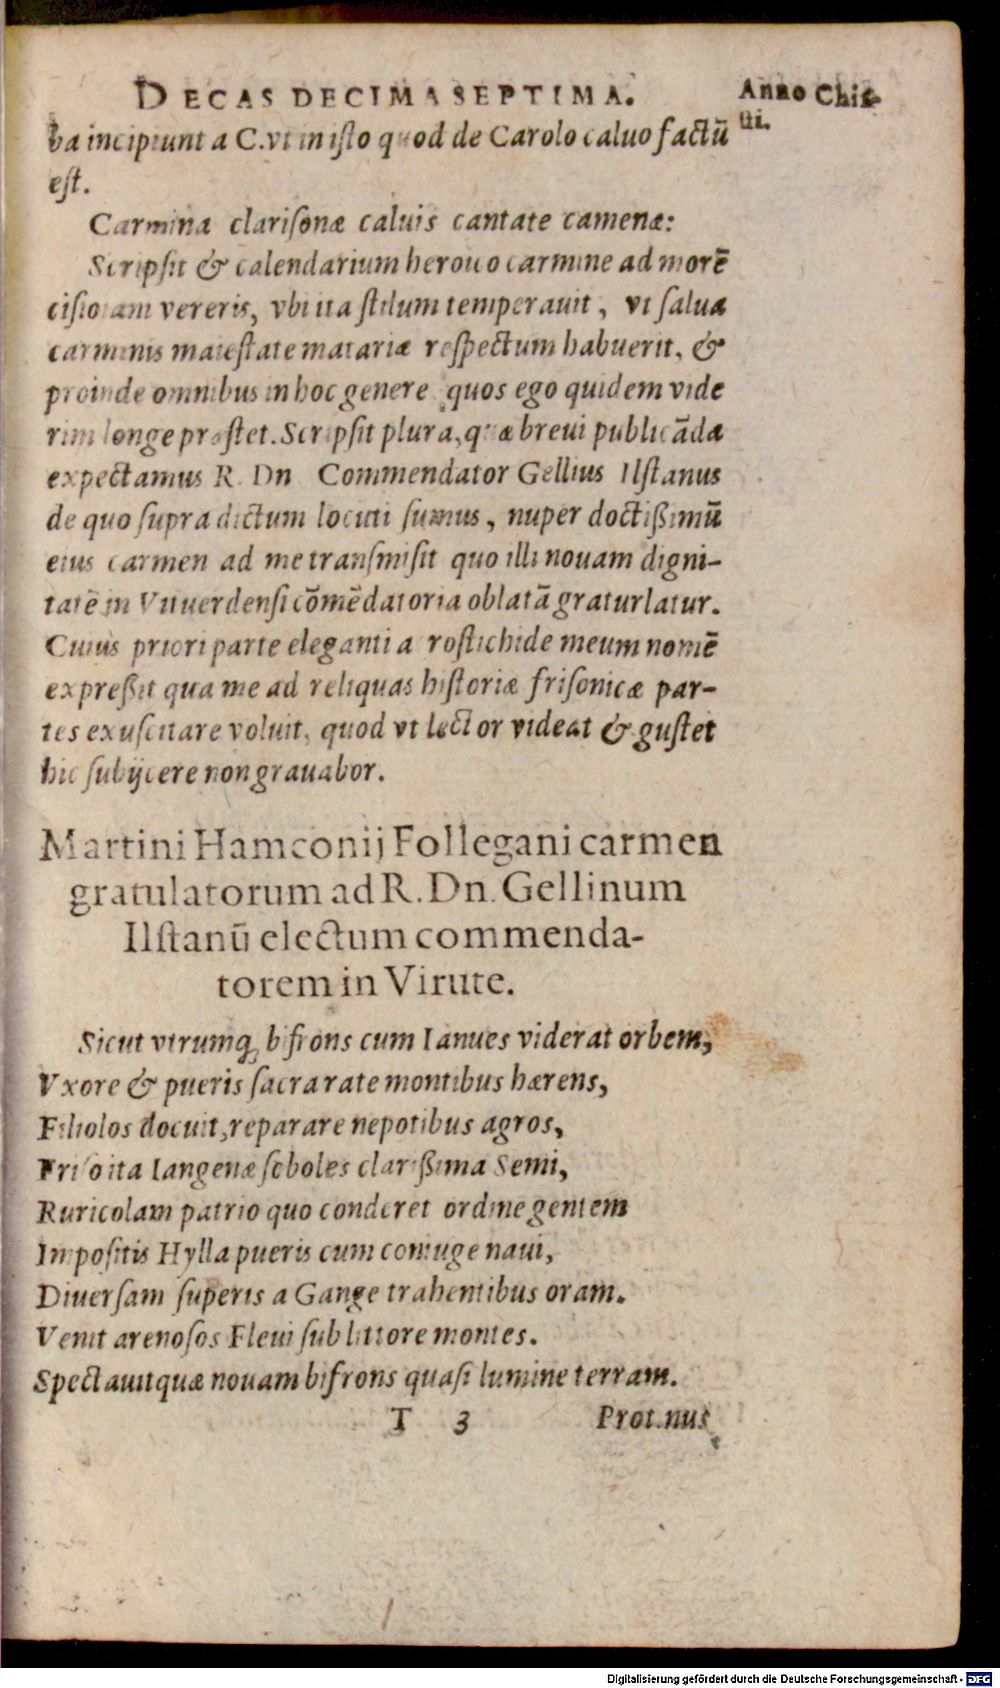 DECAS DECIMA SEPTIMA.
Anno Chis-
tii.
ba incipiunt a C. vt in isto quod de Carolo caluo factū
est.
Carmina clarisonæ caluis cantate camenæ:
Scripsit & calendarium heroico carmine ad morē
cisioiam vereris, vbi ita stilum temperauit, vt salua
carminis maiestate matariæ respectum habuerit, &
proinde omnibus in hoc genere quos ego quidem vide
rim longe præstet. Scripsit plura, quæ breui publicāda
expectamus R. Dn Commendator Gellius Ilstanus
de quo supra dictum locuti sumus, nuper doctißimū
eius carmen ad me transmisit quo illi nouam digni-
tatē in Vituerdensi cōmēdatoria oblatā graturlatur.
Cuius priori parte eleganti a rostichide meum nomē
expreßit qua me ad reliquas historiæ frisonicæ par-
tes exuscitare voluit, quod vt lector videat & gustet
hic subijcere non grauabor.
Martini Hamconij Follegani carmen
gratulatorum ad R. Dn. Gellinum
Ilstanū electum commenda-
torem in Virute.
Sicut vtrumq; bifrons cum Ianues viderat orbem,
Vxore & pueris sacra rate montibus hærens,
Filiolos docuit, reparare nepotibus agros,
Friso ita Iangenæ soboles clarißima Semi,
Ruricolam patrio quo conderet ordine gentem
Impositis Hylla pueris cum coniuge naui,
Diuersam superis a Gange trahentibus oram.
Venit arenosos Fleui sub littore montes.
Spectauitquæ nouam bifrons quasi lumine terram.
T 3
Prot.nus
Digitalisierung gefördert durch die Deutsche Forschungsgemeinschaft - DFG